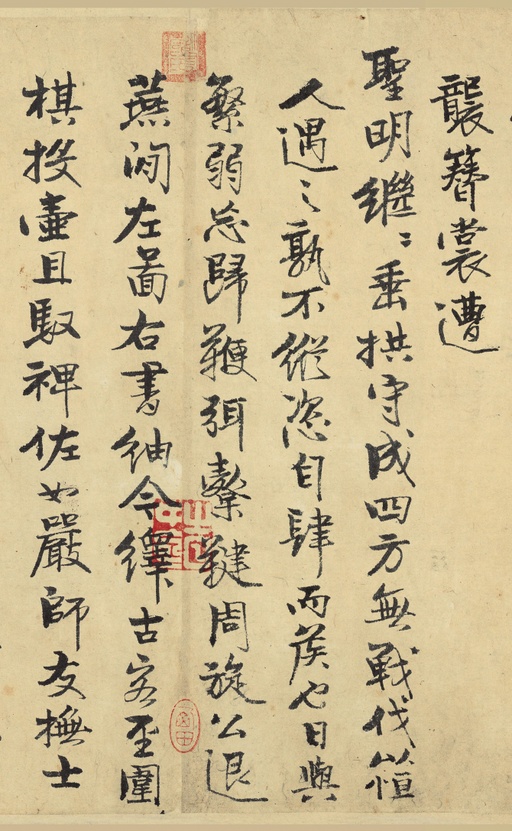 襲簪裳遭
聖明繼〻垂拱守成四方無戰伐恒
人遇之孰不縱恣自肆而侯也日與
繁弱忘歸鞭弭櫜鞬周旋公退
燕閑左啚右書紬今繹古客至圍
棋投壺且馭裨佐如嚴師友撫士